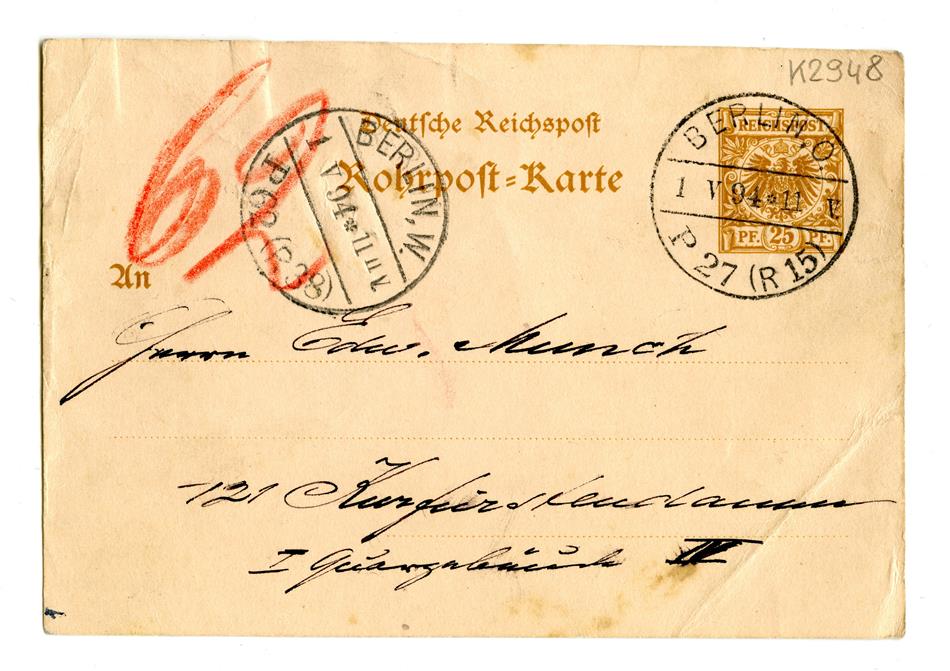 K2948
69
Deutsche Reichspost
Rohrpost-Karte
BERLIN, W.
1 V 94 * 11
P 62 (R 38)
BERLIN, O.
1 V 94 * 11 V.
P 27 (R 15)
REICHSPOST
PF. 25 PF.
An
Herrn Edw. Munch
121 Kurfürstendamm
I Quergebäude IV